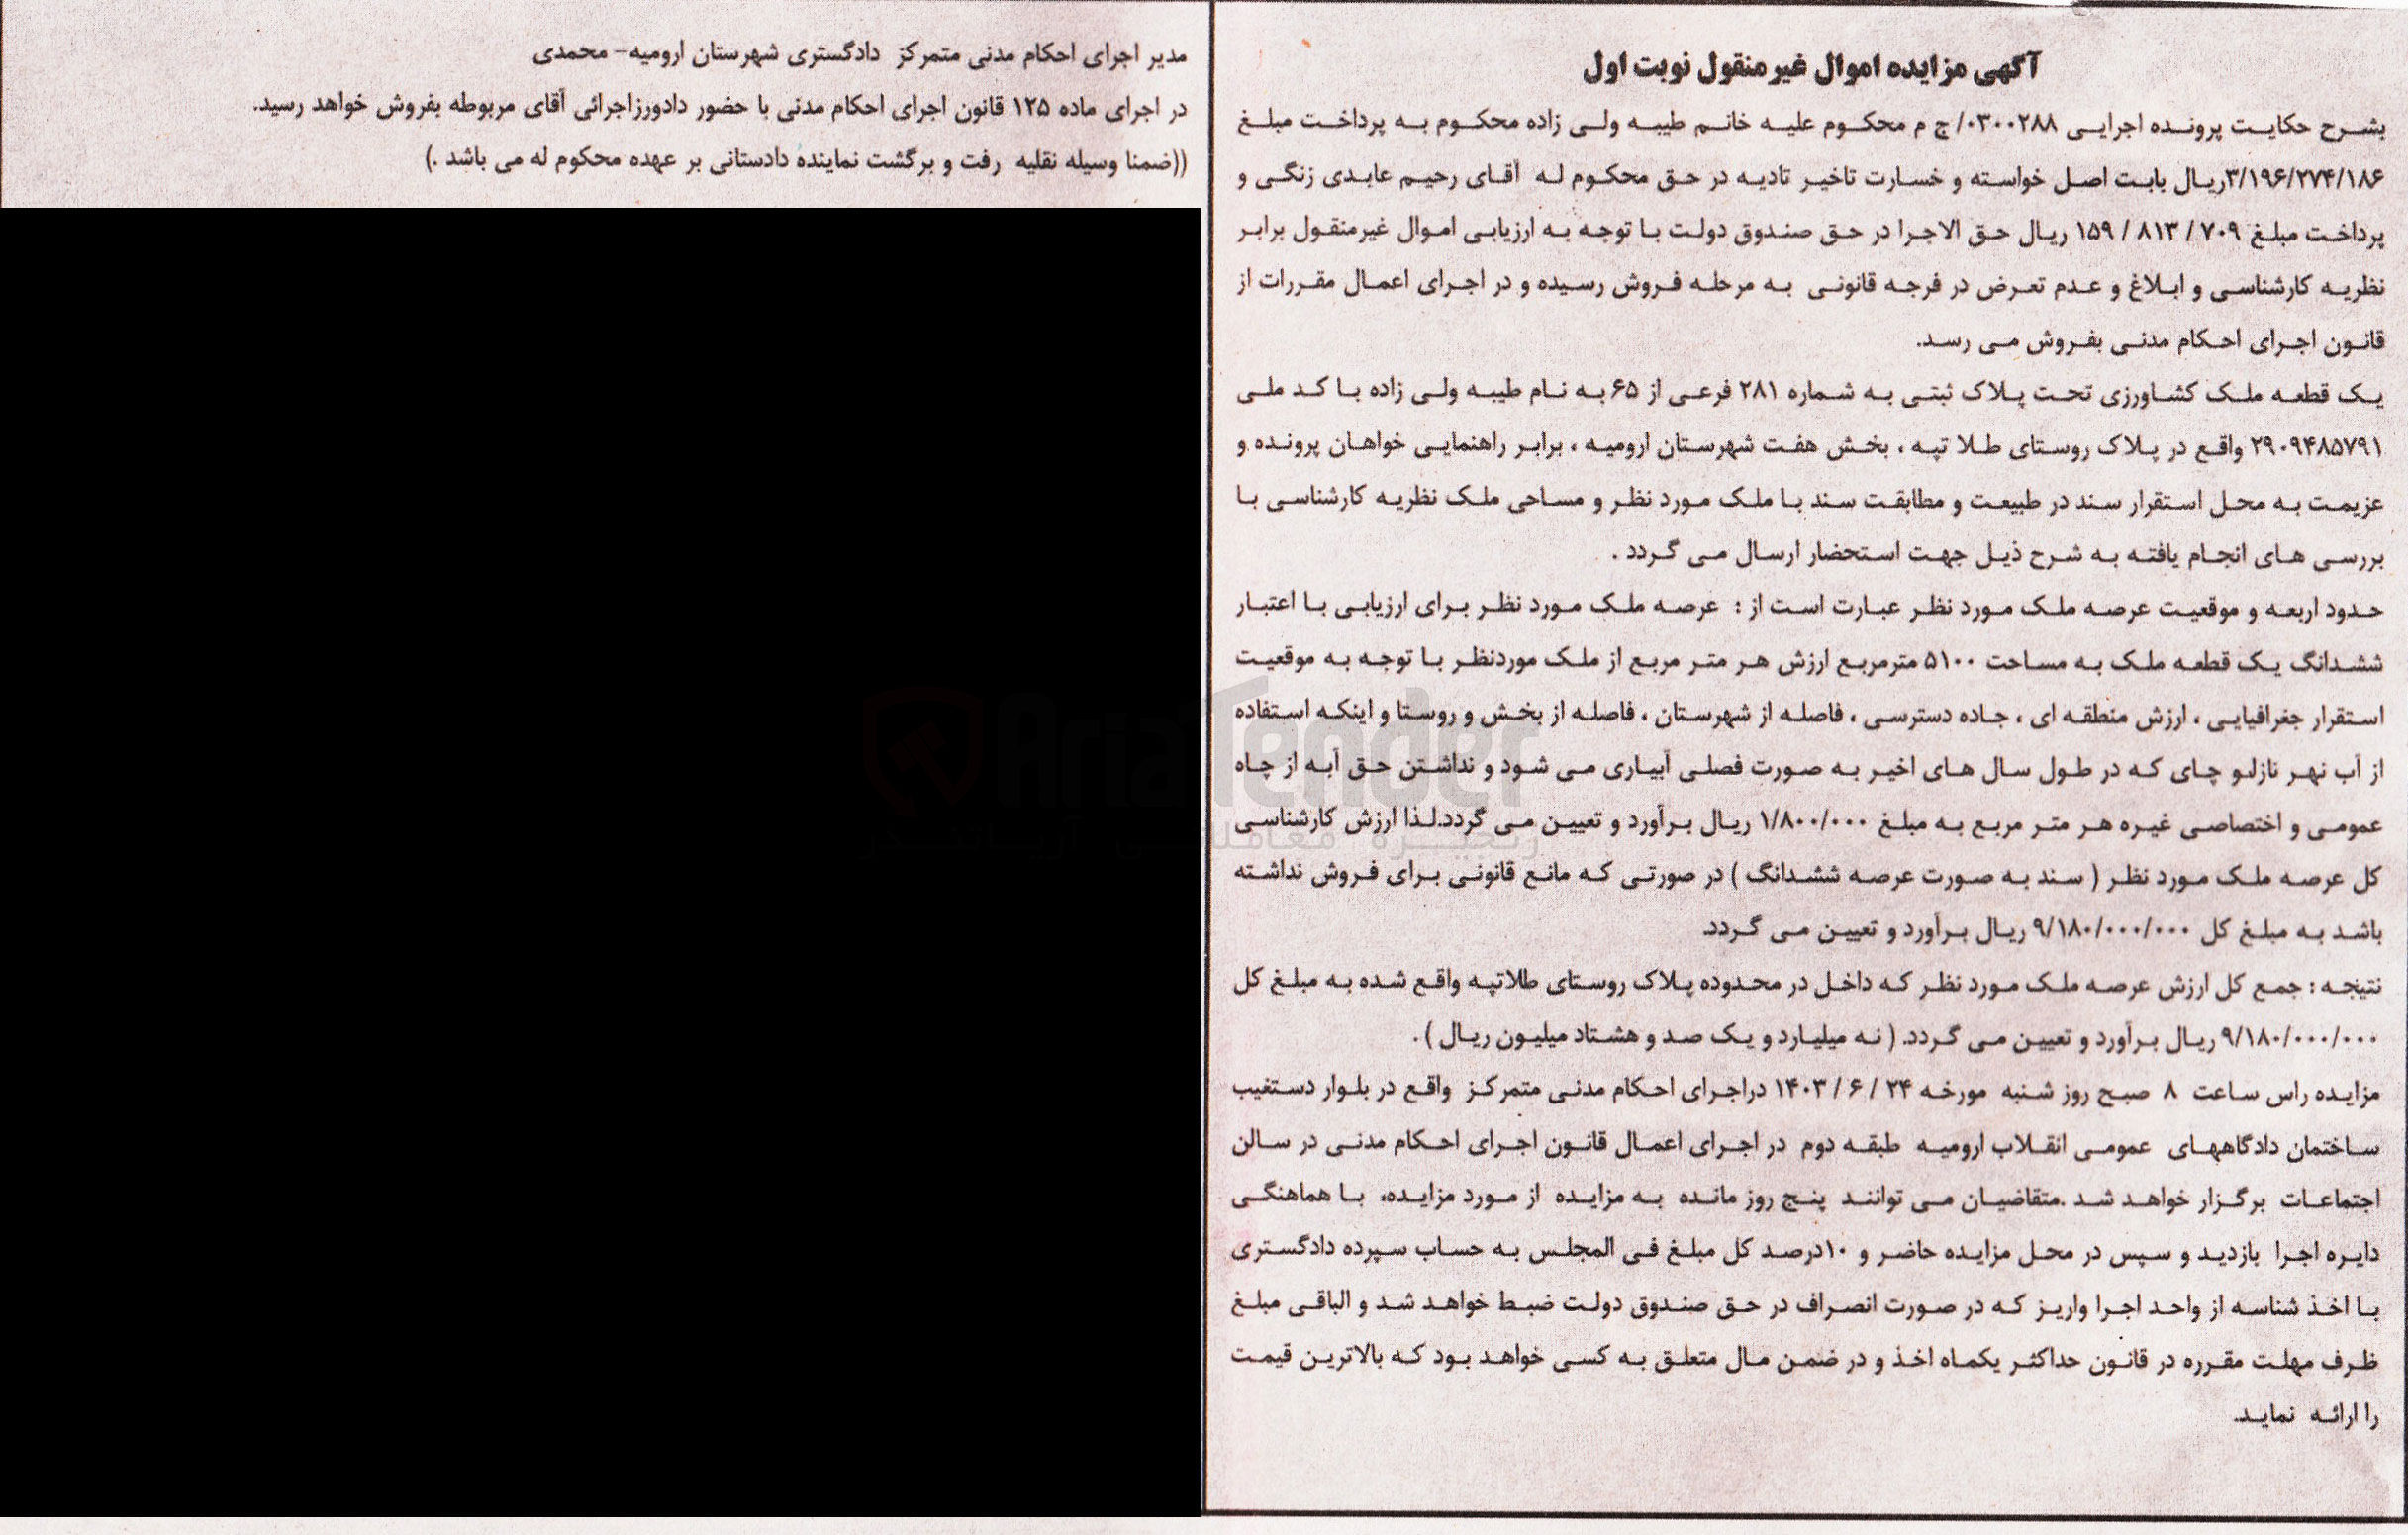 آگهی مزایده اموال غیر منقول نوبت اول
بشرح حکایت پرونده اجرایی ۰۳۰۰۲۸۸/ج م محکوم علیه خانم طیبه ولی زاده محکوم به پرداخت مبلغ
۳/۱۹۶/۲۷۴/۱۸۶ریال بابت اصل خواسته و خسارت تاخیر تادیه در حق محکوم له آقای رحیم عابدی زنگی و
پرداخت مبلغ ۷۰۹ / ۸۱۳ / ۱۵۹ ریال حق الاجرا در حق صندوق دولت با توجه به ارزیابی اموال غیرمنقول برابر
نظریه کارشناسی و ابلاغ و عدم تعرض در فرجه قانونی به مرحله فروش رسیده و در اجرای اعمال مقررات از
قانون اجرای احکام مدنی بفروش می رسد.
یک قطعه ملک کشاورزی تحت پلاک ثبتی به شماره ۲۸۱ فرعی از ۶۵ به نام طیبه ولی زاده با کد ملی
۲۹۰۹۴۸۵۷۹۱ واقع در پلاک روستای طلا تپه ، بخش هفت شهرستان ارومیه ، برابر راهنمایی خواهان پرونده و
عزیمت به محل استقرار سند در طبیعت و مطابقت سند با ملک مورد نظر و مساحی ملک نظریه کارشناسی با
بررسی های انجام یافته به شرح ذیل جهت استحضار ارسال می گردد .
حدود اربعه و موقعیت عرصه ملک مورد نظر عبارت است از : عرصه ملک مورد نظر برای ارزیابی با اعتبار
ششدانگ یک قطعه ملک به مساحت ۵۱۰۰ مترمربع ارزش هر متر مربع از ملک موردنظر با توجه به موقعیت
استقرار جغرافیایی ، ارزش منطقه ای ، جاده دسترسی ، فاصله از شهرستان ، فاصله از بخش و روستا و اینکه استفاده
از آب نهر نازلو چای که در طول سال های اخیر به صورت فصلی آبیاری می شود و نداشتن حق آبه از چاه
عمومی و اختصاصی غیره هر متر مربع به مبلغ ۱/۸۰۰/۰۰۰ ریال برآورد و تعیین می گردد.لذا ارزش کارشناسی
کل عرصه ملک مورد نظر ( سند به صورت عرصه ششدانگ ) در صورتی که مانع قانونی برای فروش نداشته
باشد به مبلغ کل ۹/۱۸۰/۰۰۰/۰۰۰ ریال برآورد و تعیین می گردد.
نتیجه : جمع کل ارزش عرصه ملک مورد نظر که داخل در محدوده پلاک روستای طلاتپه واقع شده به مبلغ کل
۹/۱۸۰/۰۰۰/۰۰۰ ریال برآورد و تعیین می گردد. ( نه میلیارد و یک صد و هشتاد میلیون ریال ) .
مزایده راس ساعت ۸ صبح روز شنبه مورخه ۲۴ / ۶ / ۱۴۰۳ دراجرای احکام مدنی متمرکز واقع در بلوار دستغیب
ساختمان دادگاههای عمومی انقلاب ارومیه طبقه دوم در اجرای اعمال قانون اجرای احکام مدنی در سالن
اجتماعات برگزار خواهد شد .متقاضیان می توانند پنج روز مانده به مزایده از مورد مزایده، با هماهنگی
دایره اجرا بازدید و سپس در محل مزایده حاضر و ۱۰درصد کل مبلغ فی المجلس به حساب سپرده دادگستری
با اخذ شناسه از واحد اجرا واریز که در صورت انصراف در حق صندوق دولت ضبط خواهد شد و الباقی مبلغ
ظرف مهلت مقرره در قانون حداکثر یکماه اخذ و در ضمن مال متعلق به کسی خواهد بود که بالاترین قیمت
را ارائه نماید.
مدیر اجرای احکام مدنی متمرکز دادگستری شهرستان ارومیه- محمدی
در اجرای ماده ۱۲۵ قانون اجرای احکام مدنی با حضور دادورزاجرائی آقای مربوطه بفروش خواهد رسید.
((ضمنا وسیله نقلیه رفت و برگشت نماینده دادستانی بر عهده محکوم له می باشد .)
AriaTender
زنجیره معاملاتی آریاتندر